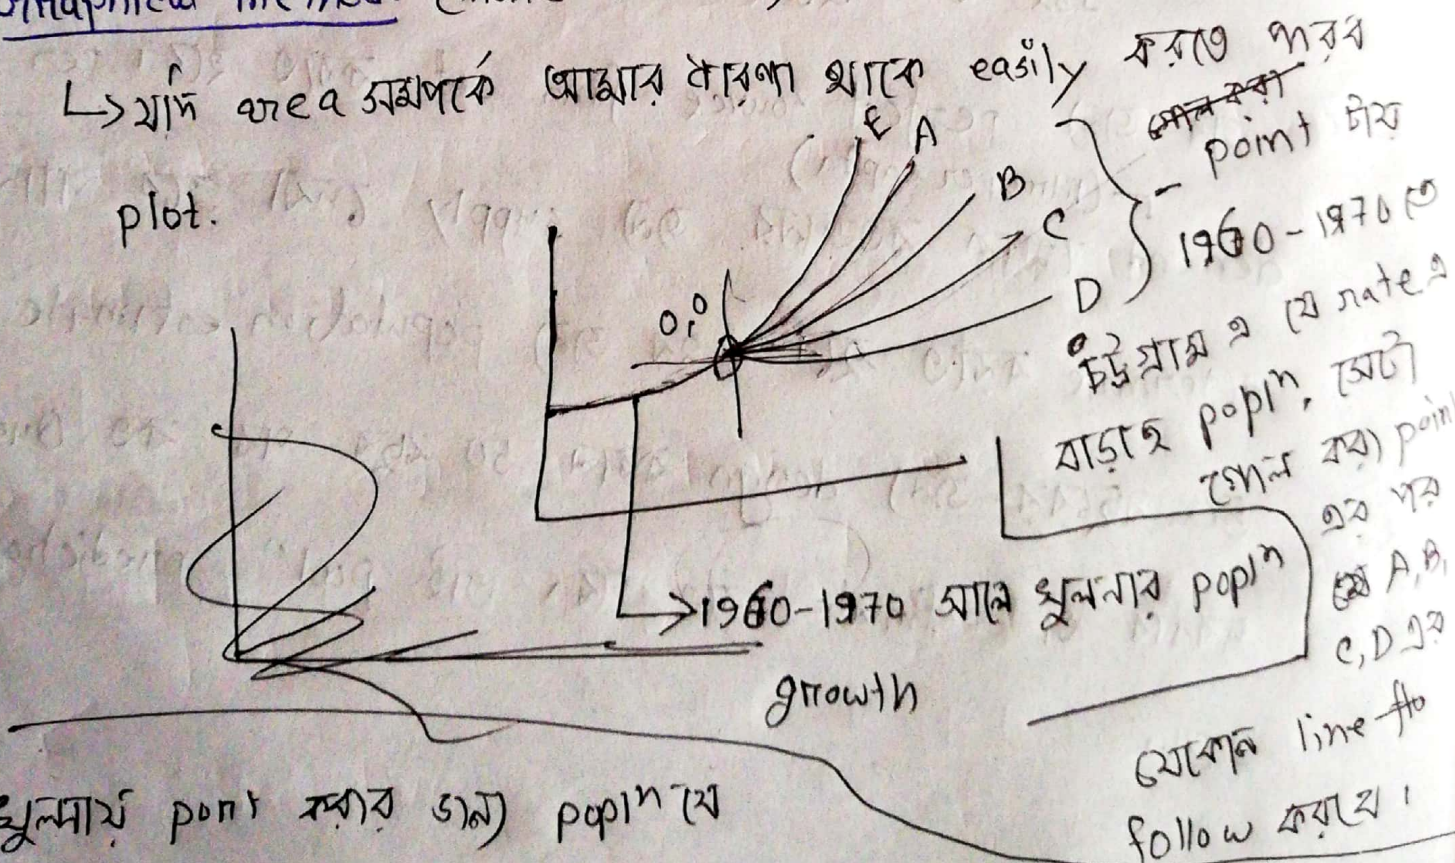 Graphical method
↳ যদি area সম্পর্কে আমার ধারণা থাকে easily করতে পারব
plot.
E
A
B
C
D
0,0
point টায়
1960-1970 তে
চট্টগ্রাম এ যে rate এ
বাড়ছে poplⁿ, সেটা
point
এর পর
A, B,
C, D এর
যেকোন line
follow করবে।
→1960-1970 সালে খুলনার poplⁿ
growth
খুলনায় port করার জন্য poplⁿ যে